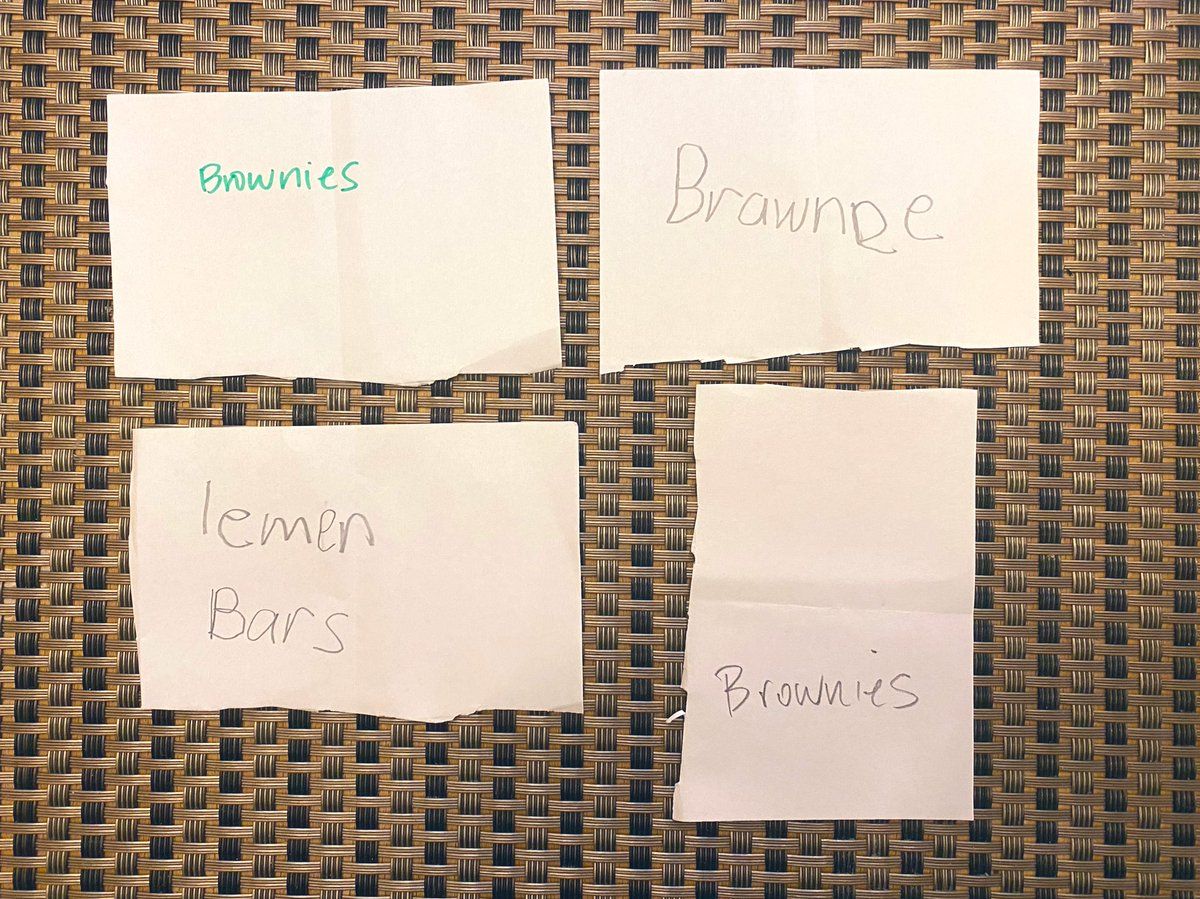 Brownies
Brawnee
lemen
Bars
Brownies